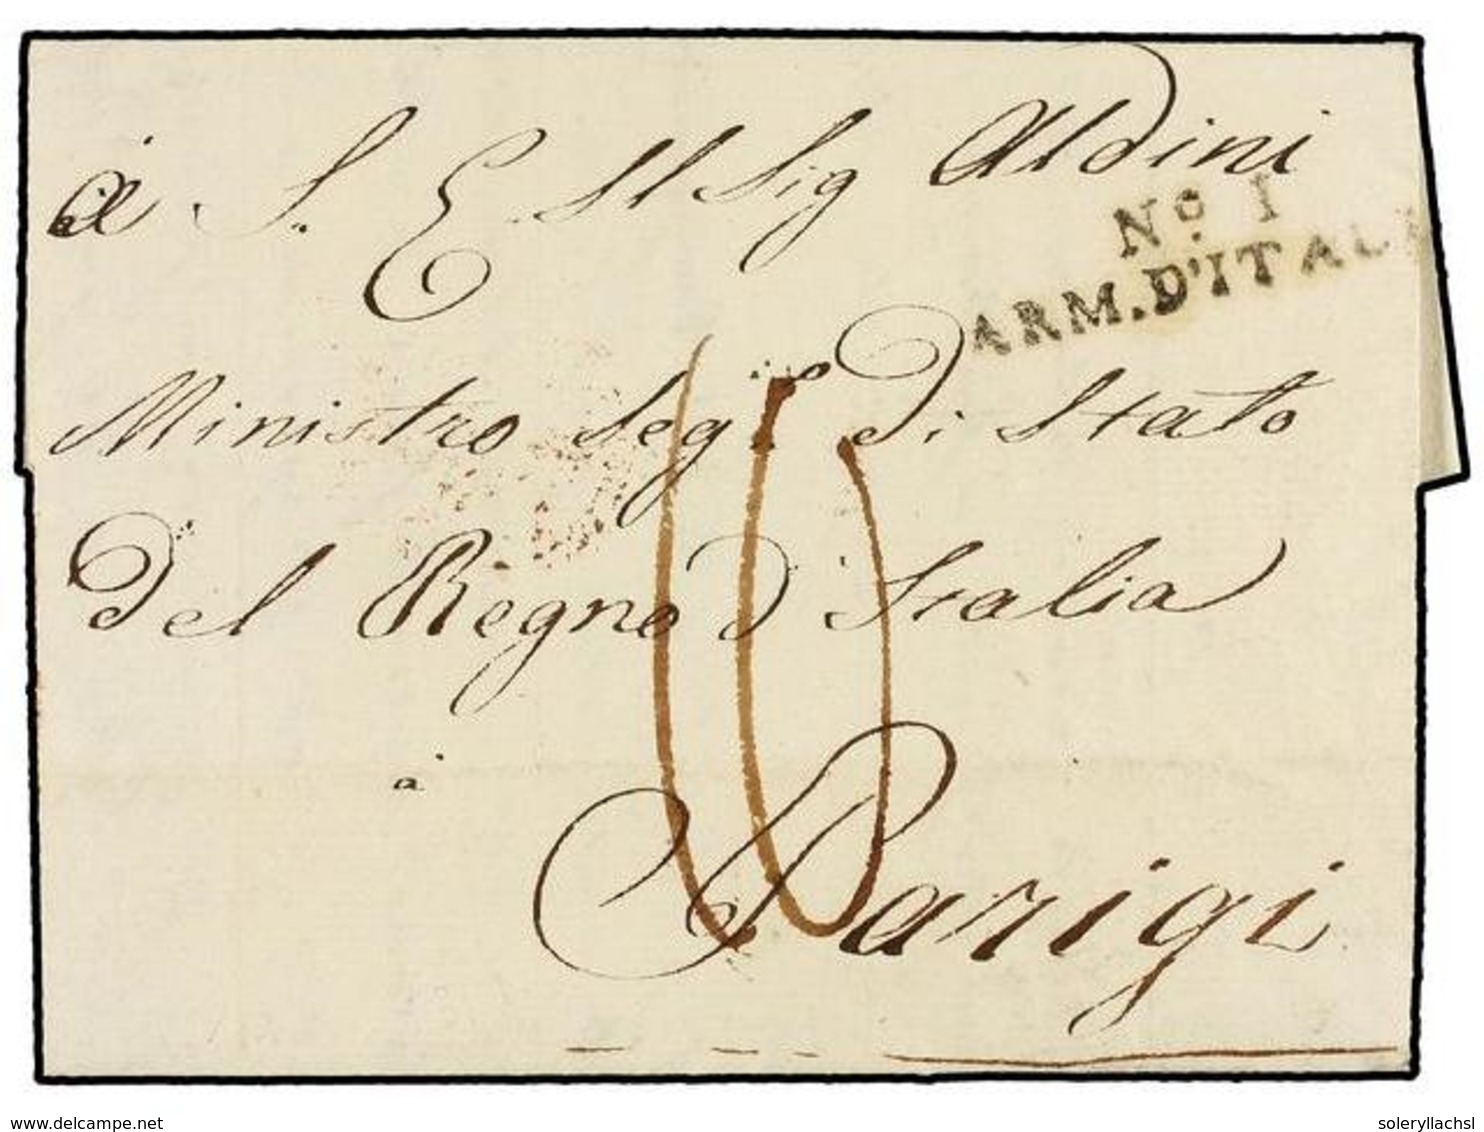 à S. E. Il Sig Aldini
No. 1
ARM. D'ITAL
Ministro Seg.o di Stato
del Regno d'Italia
à
Parigi
10
www.delcampe.net
soleryllachsl